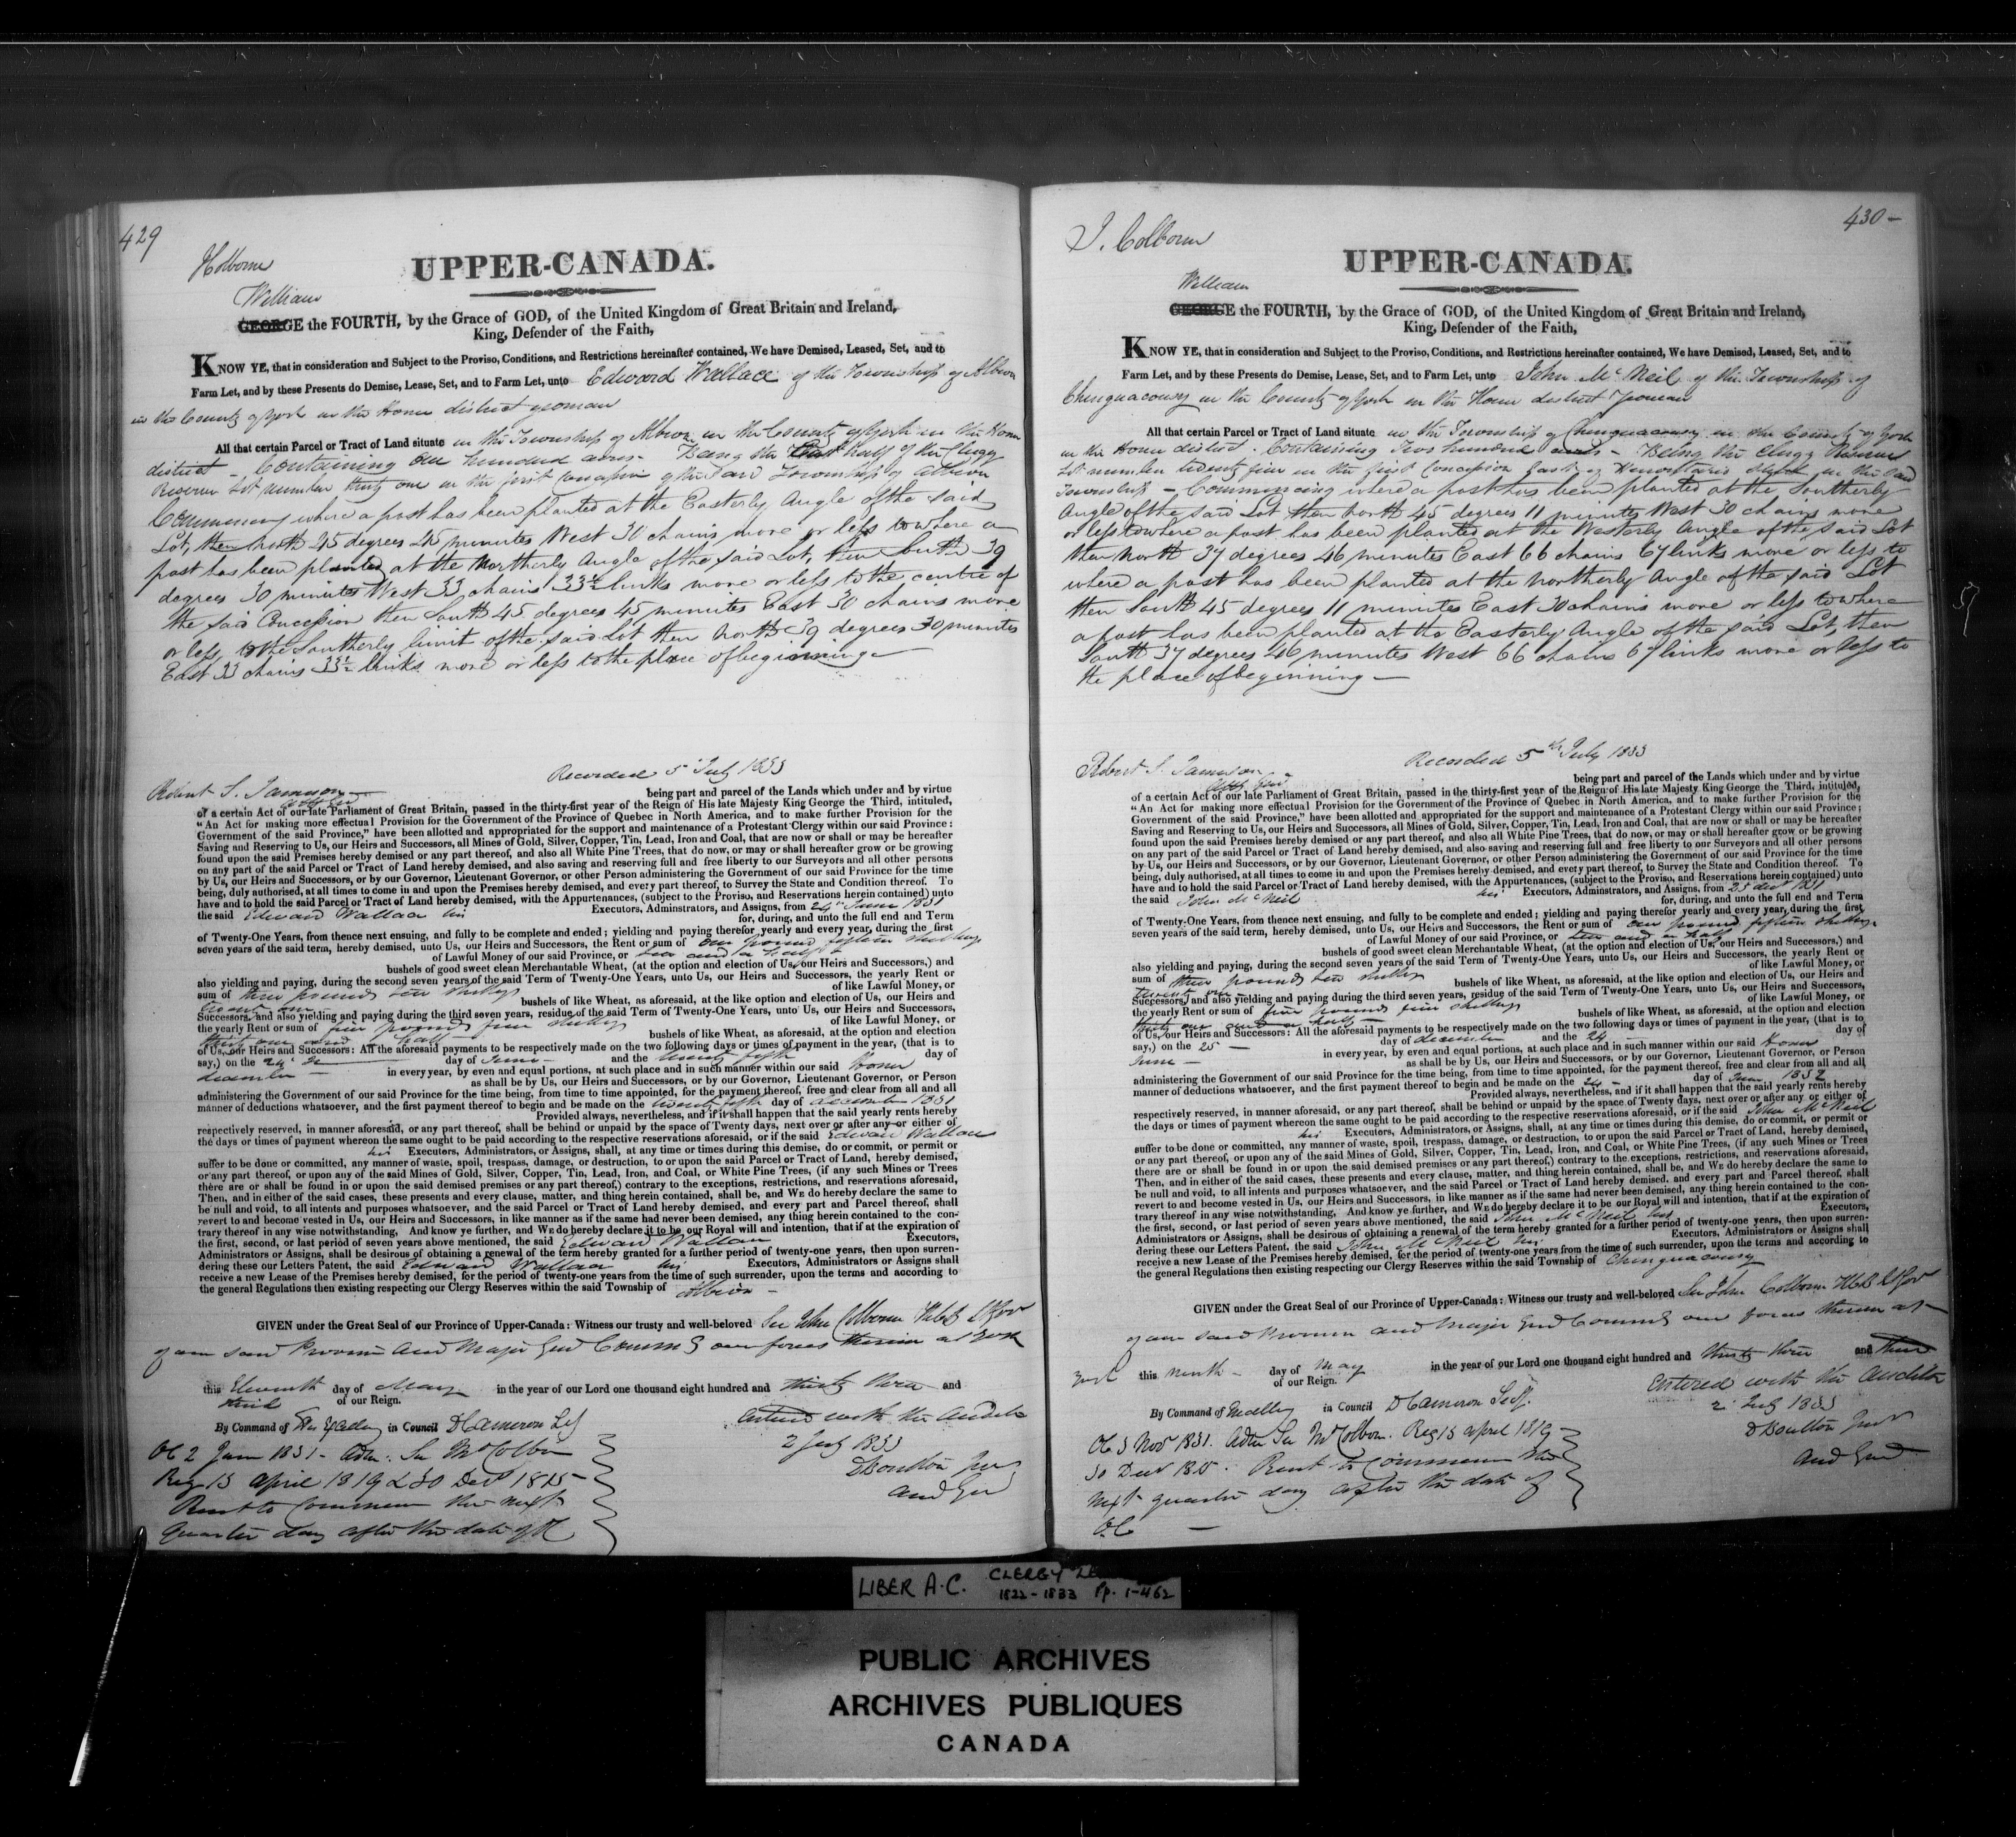 429
Holborne
UPPER-CANADA.
William
GEORGE the FOURTH, by the Grace of GOD, of the United Kingdom of Great Britain and Ireland,
King, Defender of the Faith,
KNOW YE, that in consideration and Subject to the Proviso, Conditions, and Restrictions hereinafter contained, We have Demised, Leased, Set, and to
Farm Let, and by these Presents do Demise, Lease, Set, and to Farm Let, unto Edward Wallace of the Township of Albion
in the County of York in the Home district yeoman
All that certain Parcel or Tract of Land situate in the Township of Albion in the County of York in the Home
district - Containing one hundred acres - Being the East half of the Clergy
Reserve Lot number thirty one in the first Concession of the said Township of Albion
Commencing where a post has been planted at the Easterly Angle of the said
Lot, then North 45 degrees 45 minutes West 30 chains more or less to where a
post has been planted at the Northerly Angle of the said Lot, then South 39
degrees 30 minutes West 33 chains 33½ links more or less to the centre of
the said Concession then South 45 degrees 45 minutes East 30 chains more
or less to the Southerly limit of the said Lot then North 39 degrees 30 minutes
East 33 chains 33½ links more or less to the place of beginning
Recorded 5 July 1833
Robert S. Jameson
being part and parcel of the Lands which under and by virtue
of a certain Act of our late Parliament of Great Britain, passed in the thirty-first year of the Reign of His late Majesty King George the Third, intituled,
"An Act for making more effectual Provision for the Government of the Province of Quebec in North America, and to make further Provision for the
Government of the said Province," have been allotted and appropriated for the support and maintenance of a Protestant Clergy within our said Province:
Saving and Reserving to Us, our Heirs and Successors, all Mines of Gold, Silver, Copper, Tin, Lead, Iron and Coal, that are now or shall or may be hereafter
found upon the said Premises hereby demised or any part thereof, and also all White Pine Trees, that do now, or may or shall hereafter grow or be growing
on any part of the said Parcel or Tract of Land hereby demised, and also saving and reserving full and free liberty to our Surveyors and all other persons
by Us, our Heirs and Successors, or by our Governor, Lieutenant Governor, or other Person administering the Government of our said Province for the time
being, duly authorised, at all times to come in and upon the Premises hereby demised, and every part thereof, to Survey the State and Condition thereof. To
have and to hold the said Parcel or Tract of Land hereby demised, with the Appurtenances, (subject to the Proviso, and Reservations herein contained) unto
the said Edward Wallace his Executors, Adminstrators, and Assigns, from 24th June 1831
for, during, and unto the full end and Term
of Twenty-One Years, from thence next ensuing, and fully to be complete and ended; yielding and paying therefor yearly and every year, during the first
seven years of the said term, hereby demised, unto Us, our Heirs and Successors, the Rent or sum of one pound fifteen shillings
of Lawful Money of our said Province, or ten and a half
bushels of good sweet clean Merchantable Wheat, (at the option and election of Us, our Heirs and Successors,) and
also yielding and paying, during the second seven years of the said Term of Twenty-One Years, unto Us, our Heirs and Successors, the yearly Rent or
sum of three pounds ten shillings of like Lawful Money, or
twenty one bushels of like Wheat, as aforesaid, at the like option and election of Us, our Heirs and
Successors, and also yielding and paying during the third seven years, residue of the said Term of Twenty-One Years, unto Us, our Heirs and Successors,
the yearly Rent or sum of five pounds five shillings of like Lawful Money, or
thirty one and a half bushels of like Wheat, as aforesaid, at the option and election
of Us, our Heirs and Successors: All the aforesaid payments to be respectively made on the two following days or times of payment in the year, (that is to
say,) on the 24th day of June and the twenty fifth day of
december in every year, by even and equal portions, at such place and in such manner within our said Home
as shall be by Us, our Heirs and Successors, or by our Governor, Lieutenant Governor, or Person
administering the Government of our said Province for the time being, from time to time appointed, for the payment thereof, free and clear from all and all
manner of deductions whatsoever, and the first payment thereof to begin and be made on the twenty fifth day of december 1831
Provided always, nevertheless, and if it shall happen that the said yearly rents hereby
respectively reserved, in manner aforesaid, or any part thereof, shall be behind or unpaid by the space of Twenty days, next over or after any or either of
the days or times of payment whereon the same ought to be paid according to the respective reservations aforesaid, or if the said Edward Wallace
his Executors, Administrators, or Assigns, shall, at any time or times during this demise, do or commit, or permit or
suffer to be done or committed, any manner of waste, spoil, trespass, damage, or destruction, to or upon the said Parcel or Tract of Land, hereby demised,
or any part thereof, or upon any of the said Mines of Gold, Silver, Copper, Tin, Lead, Iron, and Coal, or White Pine Trees, (if any such Mines or Trees
there are or shall be found in or upon the said demised premises or any part thereof,) contrary to the exceptions, restrictions, and reservations aforesaid,
Then, and in either of the said cases, these presents and every clause, matter, and thing herein contained, shall be, and WE do hereby declare the same to
be null and void, to all intents and purposes whatsoever, and the said Parcel or Tract of Land hereby demised, and every part and Parcel thereof, shall
revert to and become vested in Us, our Heirs and Successors, in like manner as if the same had never been demised, any thing herein contained to the con-
trary thereof in any wise notwithstanding. And know ye further, and WE do hereby declare it to be our Royal will and intention, that if at the expiration of
the first, second, or last period of seven years above mentioned, the said Edward Wallace Executors,
Administrators or Assigns, shall be desirous of obtaining a renewal of the term hereby granted for a further period of twenty-one years, then upon surren-
dering these our Letters Patent, the said Edward Wallace his Executors, Administrators or Assigns shall
receive a new Lease of the Premises hereby demised, for the period of twenty-one years from the time of such surrender, upon the terms and according to
the general Regulations then existing respecting our Clergy Reserves within the said Township of Albion
GIVEN under the Great Seal of our Province of Upper-Canada: Witness our trusty and well-beloved Sir John Colborne KCB Lt Gov
of our said Province and Major Genl Commg our forces therein at York
this Eleventh day of May in the year of our Lord one thousand eight hundred and thirty three and
third of our Reign.
By Command of in Council D Cameron Sey
Entered with the Auditor
OC 2 June 1831 - Adm: Sir Jn Colborne
2 July 1833
Reg 15 April 1819 & 30 Decr 1815
D Boulton Junr
Aud Genl
Rent to Commence the next
quarter day after the date of OC
J. Colborne
430
UPPER-CANADA.
William
GEORGE the FOURTH, by the Grace of GOD, of the United Kingdom of Great Britain and Ireland,
King, Defender of the Faith,
KNOW YE, that in consideration and Subject to the Proviso, Conditions, and Restrictions hereinafter contained, We have Demised, Leased, Set, and to
Farm Let, and by these Presents do Demise, Lease, Set, and to Farm Let, unto John McNeil of the Township of
Chinguacousy in the County of York in the Home district Yeoman
All that certain Parcel or Tract of Land situate in the Township of Chinguacousy in the County of York
in the Home district. Containing Two hundred acres - Being the Clergy Reserve
Lot number twenty five in the first Concession East of Hurontario Street in the said
Township - Commencing where a post has been planted at the Southerly
Angle of the said Lot then North 45 degrees 11 minutes West 30 chains more
or less to where a post has been planted at the Westerly Angle of the said Lot
then North 37 degrees 46 minutes East 66 chains 67 links more or less to
where a post has been planted at the Northerly Angle of the said Lot
then South 45 degrees 11 minutes East 30 chains more or less to where
a post has been planted at the Easterly Angle of the said Lot, then
South 37 degrees 46 minutes West 66 chains 67 links more or less to
the place of beginning
Recorded 5th July 1833
Robert S. Jameson
being part and parcel of the Lands which under and by virtue
of a certain Act of our late Parliament of Great Britain, passed in the thirty-first year of the Reign of His late Majesty King George the Third, intituled,
"An Act for making more effectual Provision for the Government of the Province of Quebec in North America, and to make further Provision for the
Government of the said Province," have been allotted and appropriated for the support and maintenance of a Protestant Clergy within our said Province;
Saving and Reserving to Us, our Heirs and Successors, all Mines of Gold, Silver, Copper, Tin, Lead, Iron and Coal, that are now or shall or may be hereafter
found upon the said Premises hereby demised or any part thereof, and also all White Pine Trees, that do now, or may or shall hereafter grow or be growing
on any part of the said Parcel or Tract of Land hereby demised, and also saving and reserving full and free liberty to our Surveyors and all other persons
by Us, our Heirs and Successors, or by our Governor, Lieutenant Governor, or other Person administering the Government of our said Province for the time
being, duly authorised, at all times to come in and upon the Premises hereby demised, and every part thereof, to Survey the State and Condition thereof. To
have and to hold the said Parcel or Tract of Land hereby demised, with the Appurtenances, (subject to the Proviso, and Reservations herein contained) unto
the said John McNeil his Executors, Adminstrators, and Assigns, from 25 decr 1831
for, during, and unto the full end and Term
of Twenty-One Years, from thence next ensuing, and fully to be complete and ended; yielding and paying therefor yearly and every year, during the first
seven years of the said term, hereby demised, unto Us, our Heirs and Successors, the Rent or sum of one pound fifteen shillings
of Lawful Money of our said Province, or ten and a half
bushels of good sweet clean Merchantable Wheat, (at the option and election of Us, our Heirs and Successors,) and
also yielding and paying, during the second seven years of the said Term of Twenty-One Years, unto Us, our Heirs and Successors, the yearly Rent or
sum of three pounds ten shillings of like Lawful Money, or
twenty one bushels of like Wheat, as aforesaid, at the like option and election of Us, our Heirs and
Successors, and also yielding and paying during the third seven years, residue of the said Term of Twenty-One Years, unto Us, our Heirs and Successors,
the yearly Rent or sum of five pounds five shillings of like Lawful Money, or
thirty one and a half bushels of like Wheat, as aforesaid, at the option and election
of Us, our Heirs and Successors: All the aforesaid payments to be respectively made on the two following days or times of payment in the year, (that is to
say,) on the 25 day of december and the 24 day of
June in every year, by even and equal portions, at such place and in such manner within our said Home
as shall be by Us, our Heirs and Successors, or by our Governor, Lieutenant Governor, or Person
administering the Government of our said Province for the time being, from time to time appointed, for the payment thereof, free and clear from all and all
manner of deductions whatsoever, and the first payment thereof to begin and be made on the 24 day of June 1832
Provided always, nevertheless, and if it shall happen that the said yearly rents hereby
respectively reserved, in manner aforesaid, or any part thereof, shall be behind or unpaid by the space of Twenty days, next over or after any or either of
the days or times of payment whereon the same ought to be paid according to the respective reservations aforesaid, or if the said John McNeil
his Executors, Administrators, or Assigns, shall, at any time or times during this demise, do or commit, or permit or
suffer to be done or committed, any manner of waste, spoil, trespass, damage, or destruction, to or upon the said Parcel or Tract of Land, hereby demised,
or any part thereof, or upon any of the said Mines of Gold, Silver, Copper, Tin, Lead, Iron, and Coal, or White Pine Trees, (if any such Mines or Trees
there are or shall be found in or upon the said demised premises or any part thereof,) contrary to the exceptions, restrictions, and reservations aforesaid,
Then, and in either of the said cases, these presents and every clause, matter, and thing herein contained, shall be, and WE do hereby declare the same to
be null and void, to all intents and purposes whatsoever, and the said Parcel or Tract of Land hereby demised, and every part and Parcel thereof, shall
revert to and become vested in Us, our Heirs and Successors, in like manner as if the same had never been demised, any thing herein contained to the con-
trary thereof in any wise notwithstanding. And know ye further, and WE do hereby declare it to be our Royal will and intention, that if at the expiration of
the first, second, or last period of seven years above mentioned, the said John McNeil his Executors,
Administrators or Assigns, shall be desirous of obtaining a renewal of the term hereby granted for a further period of twenty-one years, then upon surren-
dering these our Letters Patent, the said John McNeil his Executors, Administrators or Assigns shall
receive a new Lease of the Premises hereby demised, for the period of twenty-one years from the time of such surrender, upon the terms and according to
the general Regulations then existing respecting our Clergy Reserves within the said Township of Chinguacousy
GIVEN under the Great Seal of our Province of Upper-Canada: Witness our trusty and well-beloved Sir John Colborne KCB Lt Gov
of our said Province and Major Genl Commg our forces therein at
York this ninth day of May in the year of our Lord one thousand eight hundred and thirty three and third
of our Reign.
Entered with the Auditor
By Command of in Council D Cameron Secy.
2 July 1833
OC 3 Novr 1831. Adm Sir Jn Colborne. Reg 15 April 1819
D Boulton Junr
30 Decr 1815. Rent to Commence the
Aud Genl
next quarter day after the date of
O.C.
57
LIBER A.C. CLERGY
1822-1833 Pp. 1-462
PUBLIC ARCHIVES
ARCHIVES PUBLIQUES
CANADA